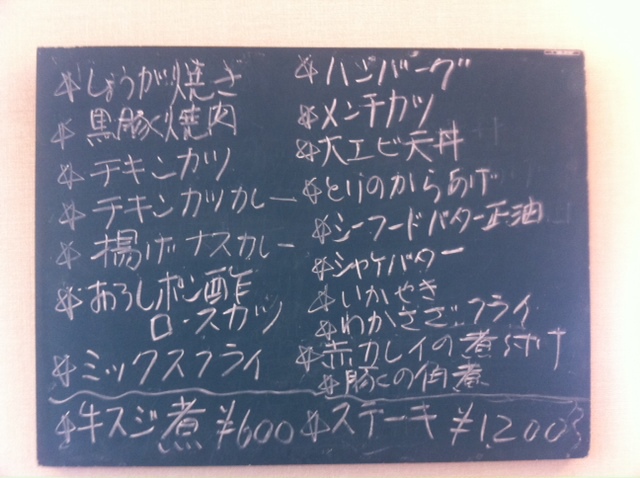 ☆しょうが焼き
☆黒豚焼肉
☆チキンカツ
☆チキンカツカレー
☆揚げナスカレー
☆おろしポン酢
ロースカツ
☆ミックスフライ
☆ハンバーグ
☆メンチカツ
☆大エビ天丼
☆とりのからあげ
☆シーフードバター正油
☆シャケバター
☆いかやき
☆わかさぎフライ
☆赤カレイの煮付け
☆豚の角煮
☆牛スジ煮 ¥600
☆ステーキ ¥1,200